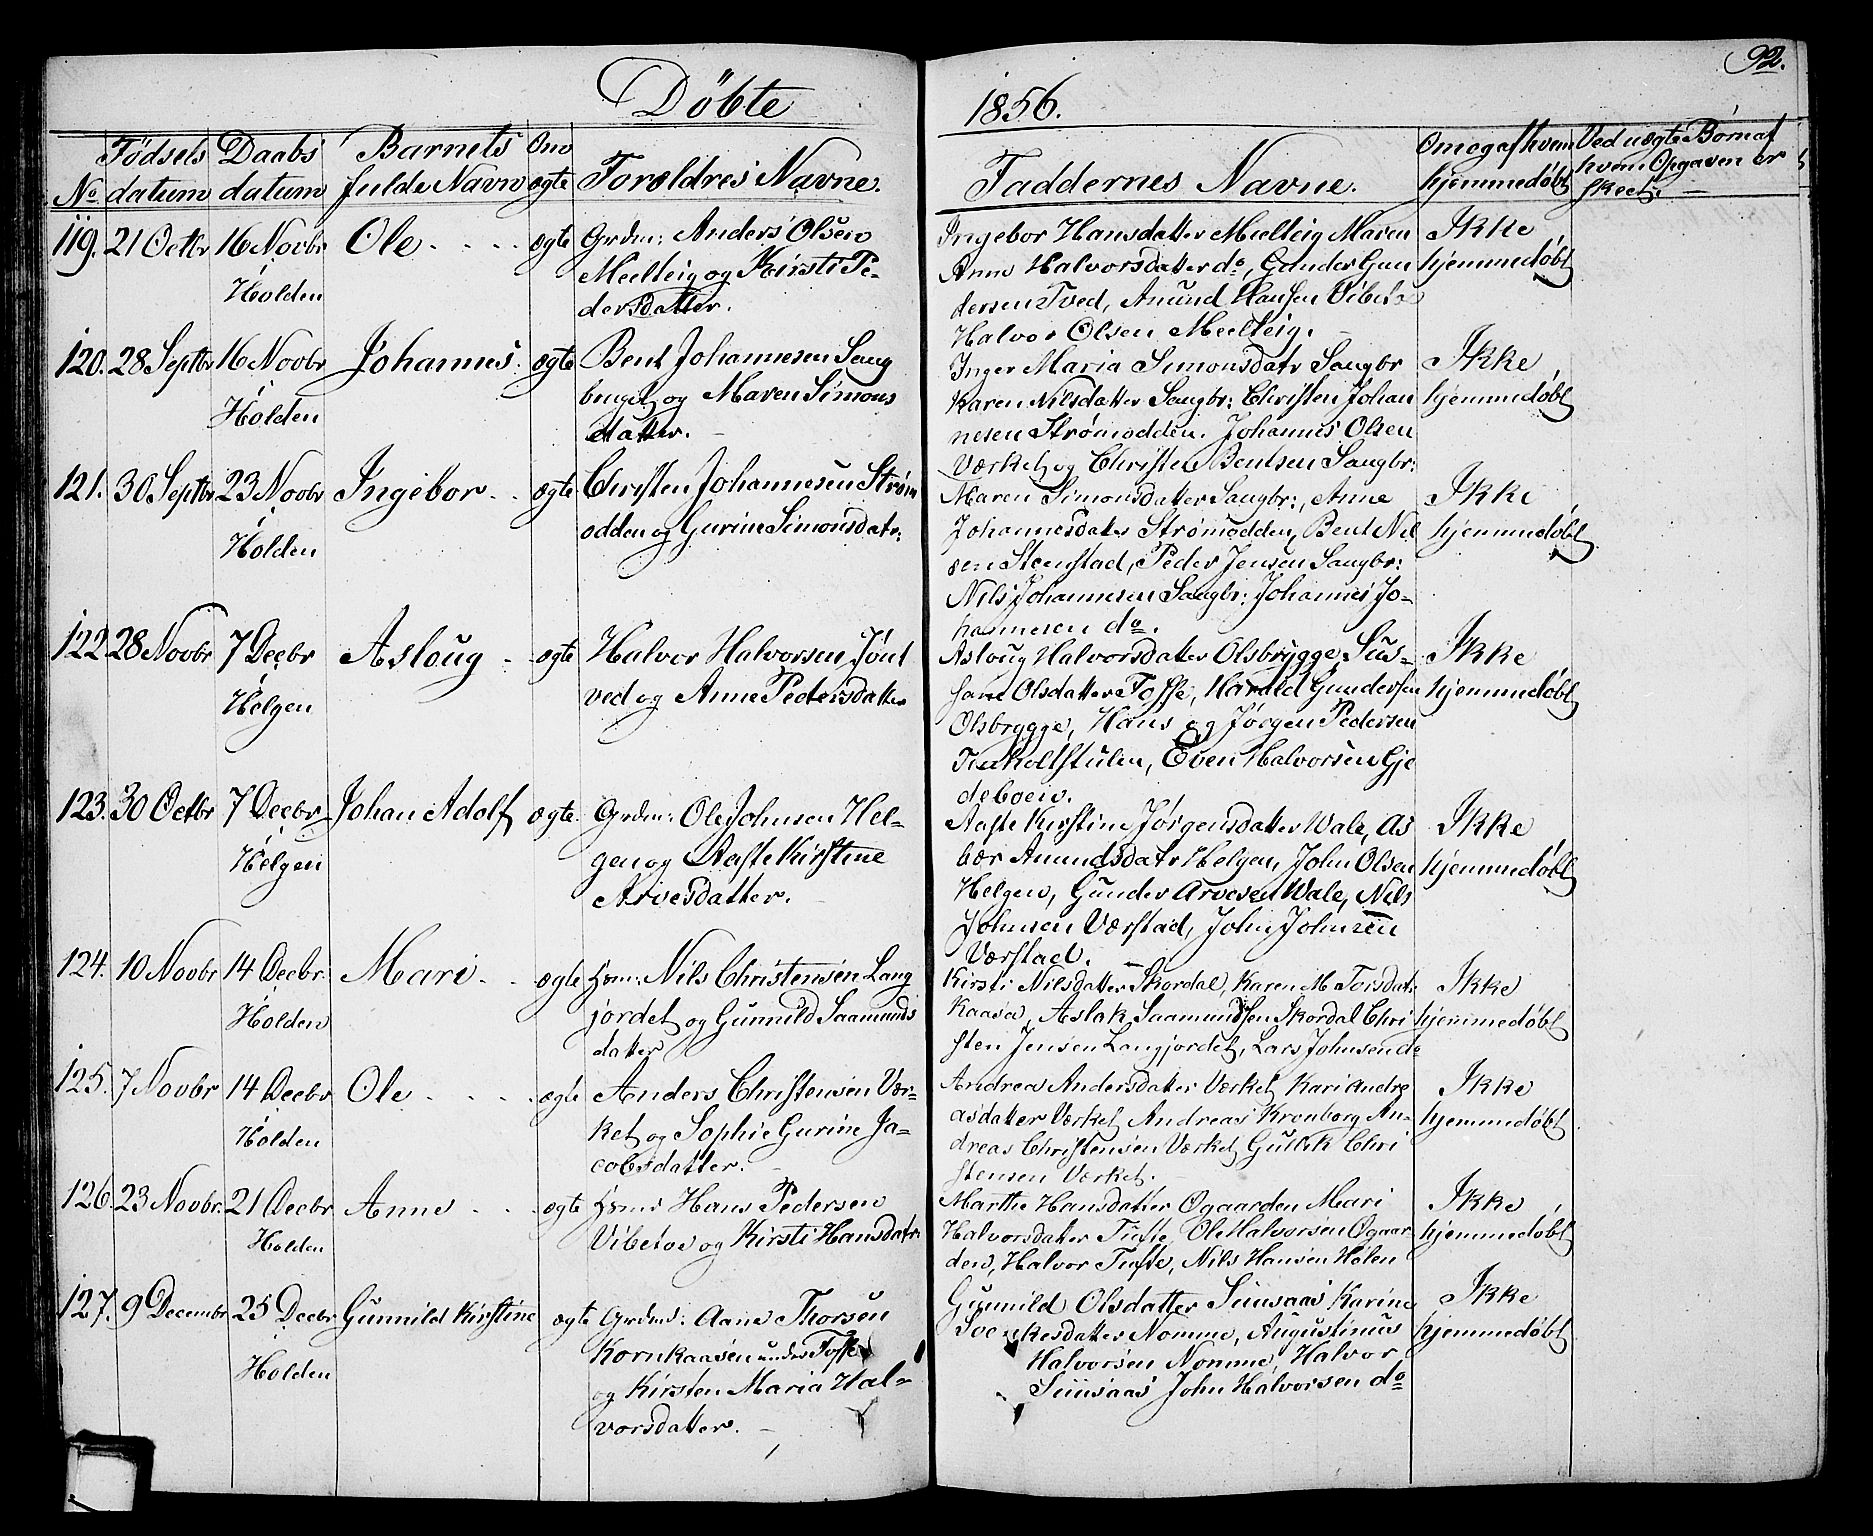 Döbte
1856.
92.
No
Fødsels datum
Daabs datum
Barnets fulde Navn
Om ægte
Forældres Navne.
Faddernes Navne.
Om og af hvem hjemmedøbt
Ved uægte Børn af hvem Opgaven er skeet.
119. 21 Octbr 16 Novbr Ole ægte Grdm: Anders Olsen
Holden
Meelteig og Kirsti Pe-
dersdatter.
Ingebor Hansdatter Meelteig Maren
Anne Halvorsdatter do, Gunder Gun
dersen Tved, Anund Hansen Vibeto
Halvor Olsen Meelteig.
Ikke
hjemmedøbt
120. 28 Septbr 16 Novbr Johannes ægte Bent Johannesen Saug
Holden
bruget og Maren Simons
datter.
Inger Maria Simonsdatr Saugbr
Karen Nilsdatter Saugbr: Christen Johan
nesen Strømodden. Johannes Olsen
Værket og Christen Bentsen Saugbr:
Ikke
hjemmedøbt
121. 30 Septbr 23 Novbr Ingebor ægte Christen Johannesen Strøm
Holden
odden og Gurine Simonsdatr:
Maren Simonsdatter Saugbr:, Anne
Johannesdatr Strømodden, Bent Nil
sen Steenstad, Peder Jensen Saugbr:
Nils Johannesen Saugbr: Johannes Jo-
hannesen do.
Ikke
hjemmedøbt
122 28 Novbr 7 Decbr Asloug ægte Halvor Halvorsen Jønt
Helgen
ved og Anne Pedersdatter
Asloug Halvorsdatter Olsbrygge, Sus-
sane Olsdatter Tosse, Harald Gundersen
Olsbrygge, Hans og Jørgen Pedersen
Even Halvorsen Gje
deboen.
Ikke
hjemmedøbt
123. 30 Octbr 7 Decbr Johan Adolf ægte. Grdm: Ole Johnsen Hel-
Helgen
gen og Aaste Kirstine
Arvesdatter.
Aaste Kirstine Jörgensdatter Wale, As
bør Anundsdatr Helgen, John Olsen
Helgen, Gunder Arvesen Wale, Nils
Johnsen Værstad, John Johnsen
Værstad.
Ikke
hjemmedøbt
124. 10 Novbr 14 Decbr. Mari ægte Hsm: Nils Christensen Lang
Holden
jordet og Gunnild Saamunds
datter
Kirsti Nilsdatter Skordal, Karen M Torsdatr
Kaasa, Aslak Saamundsen Skordal Chri
sten Jensen Langjordet, Lars Johnsen do
Ikke
hjemmedøbt
125. 7 Novbr 14 Decbr Ole ægte Anders Christensen Vær-
Holden
ket og Sophie Gurine Ja-
cobsdatter.
Andrea Andersdatter Værket Kari Andre
asdatter Værket Andreas Kronborg An-
dreas Christensen Værket Gullik Chri
stensen Værket.
Ikke
hjemmedøbt
126. 23 Novbr. 21 Decbr Anne ægte Hsm: Hans Pedersen
Holden
Vibetoe og Kirsti Hansdatr.
Marthe Hansdatter Øgaarden Mari
Halvorsdatter Tufte, Ole Halvorsen Øgaar
den, Halvor Tufte, Nils Hansen Holen
Ikke
hjemmedøbt
127. 9 Decembr 25 Decbr Gunnild Kirstine ægte Grdm: Aane Thorsen
Holden
Kornkaasen under Tosse
og Kirsten Maria Hal-
vorsdatter.
Gunnild Olsdatter Suusaas Karine
Svenkesdatter Nomme, Augustinus
Halvorsen Nomme, Halvor
Suusaas John Halvorsen do
Ikke
hjemmedøbt